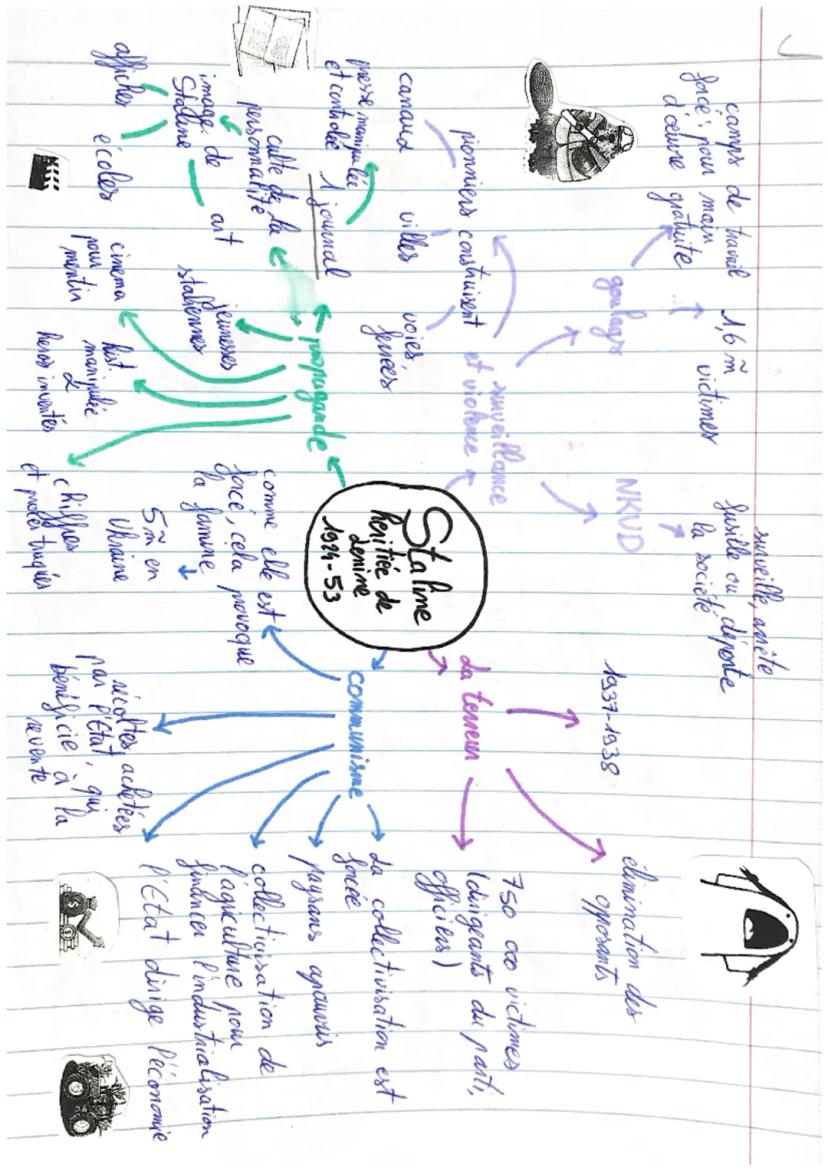 Staline
héritiée de
Lenine
1924-53
surveillance
et violence
goulags
camps de travail
forcé; pour main
d'œuvre gratuite
1,6 m̃
victimes
NKVD
surveille, arrête
fusille ou déporte
la société
pionniers construisent
canaux
villes
voies
ferrées
propagande
1 journal
presse manipulée
et controlée
culte de la
personnalité
image de
Staline
affiches
écoles
art
jeunesses
staliennes
cinema
pour
mentir
hist.
manipulée
heros inventés
chiffres
et procès truqués
La terreur
1937-1938
élimination des
opposants
750 000 victimes
(dirigeants du parti,
officiers)
communisme
La collectivisation est
forcée
paysans apauvris
collectivisation de
l'agriculture pour
financer l'industrialisation
l'Etat dirige l'économie
récoltes achetées
par l'Etat, qui
bénéficie à la
revente
comme elle est
forcé, cela provoque
la famine
5 m̃ en
Ukraine